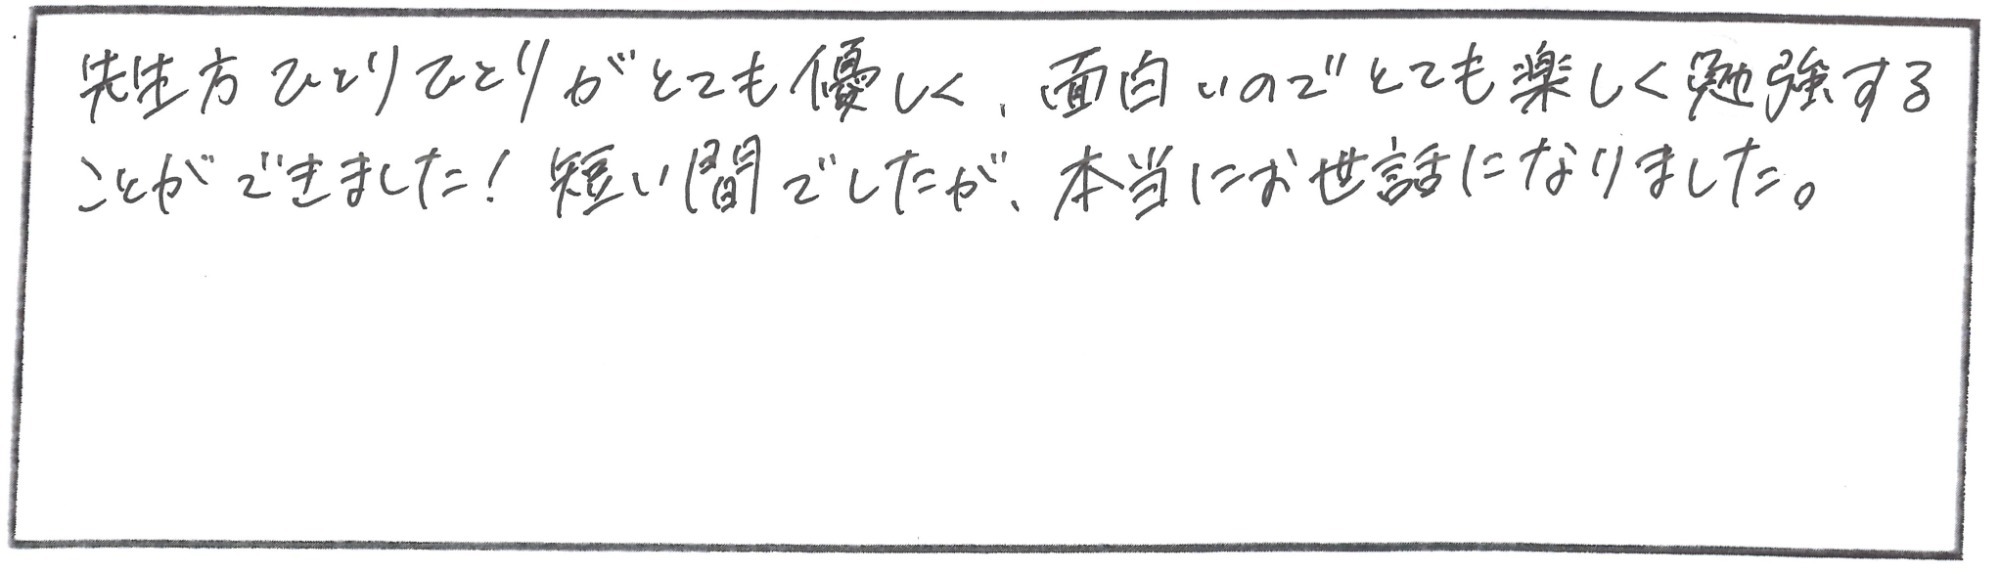 先生方ひとりひとりがとても優しく、面白いのでとても楽しく勉強する
ことができました！短い間でしたが、本当にお世話になりました。